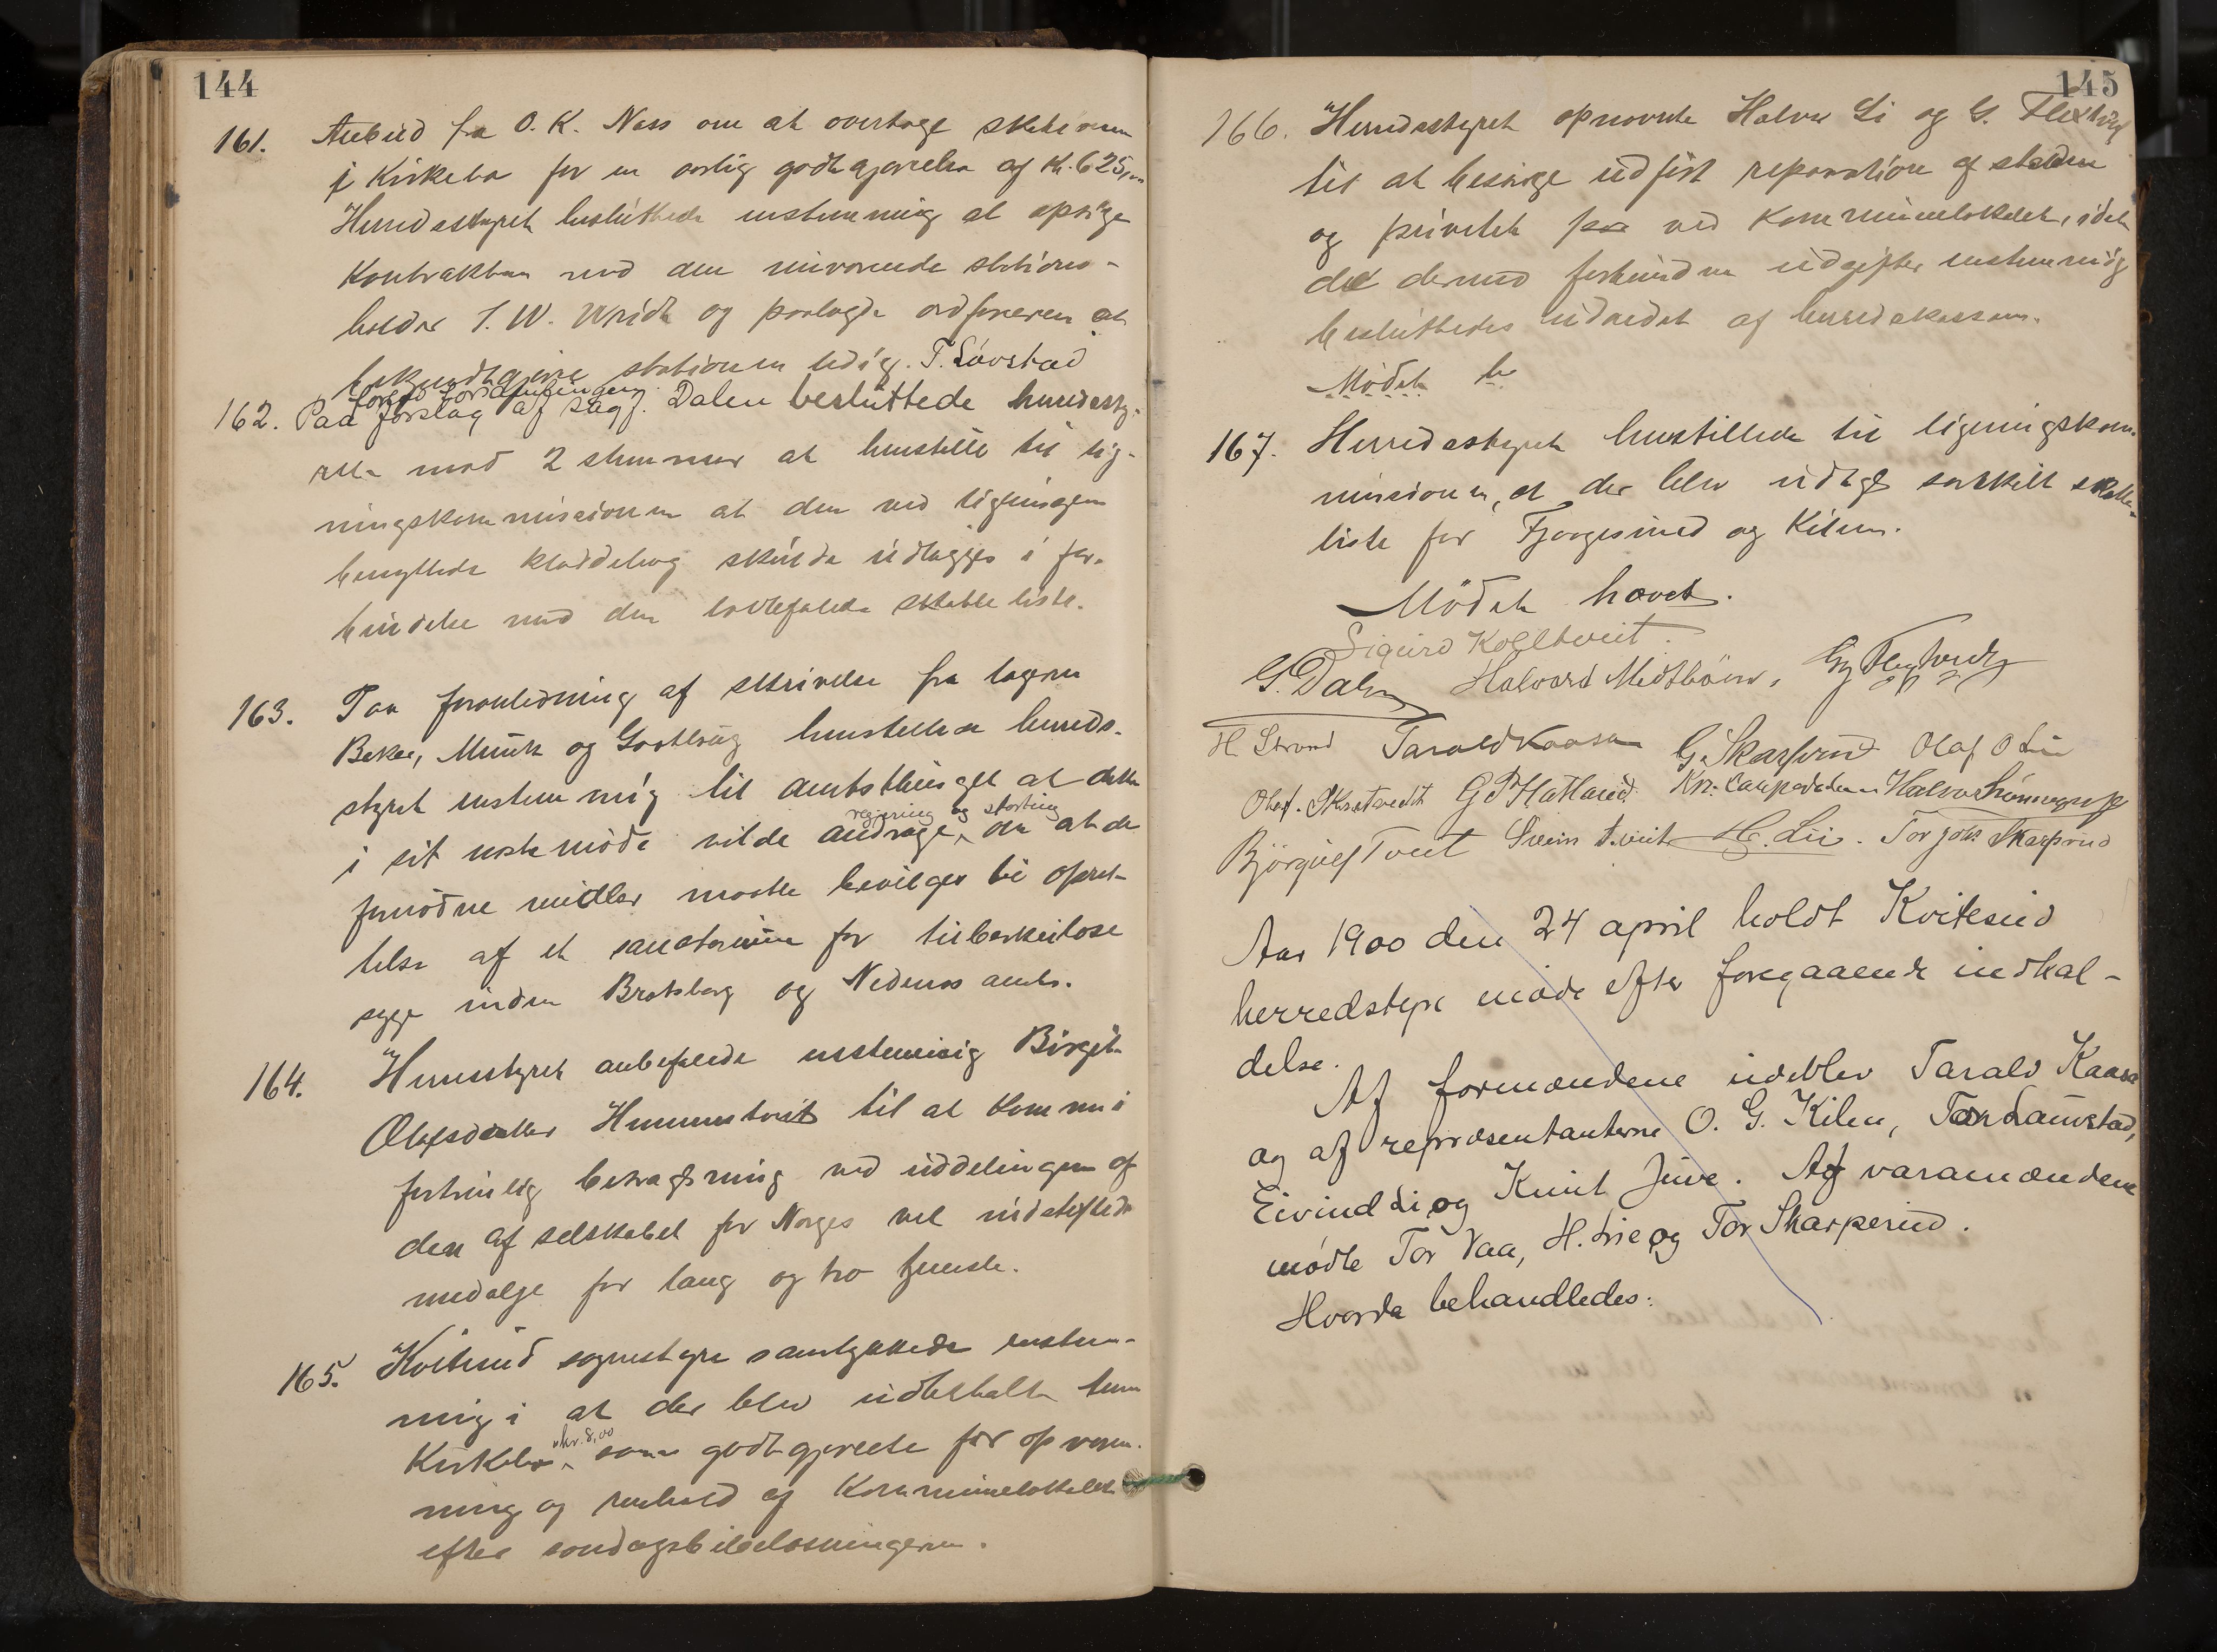 144
161. Anbud fra O. K. Ness om at overtage skydsstationen
i Kirkebø for en aarlig godtgjørelse af kr. 625,00
Herredsstyret besluttede enstemmig at opsige
Kontrakten med den nuværende stations-
holder S. W. og paalagde ordføreren at
bekjendtgjøre stationen ledig. T. Lövstad
forlod forsamlingen.
162. Paa forslag af sagf. Dalen besluttede herredssty-
ret mod 2 stemmer at henstille til lig-
ningskommissionen at den ved ligningen
benyttede kladdebog skulde udlægges i for-
bindelse med den lovbefalede skatteliste.
163. Paa foranledning af skrivelse fra lægerne
Beker, Munk og henstillede herreds-
styret enstemmig til amtsthinget at dette
i sit næste möde vilde andrage regjering og storting om at de
fornödne midler maatte bevilges til opret-
telse af et sanatorium for tuberkulose
syge inden Bratsberg og Nedenæs amter.
164. Herredsstyret anbefalede enstemmig Birgit
Olafsdatter Hemmestveit til at komme i
fortrinlig betragtning ved uddelingen af
den af selskabet for Norges vel udstæftede
medalje for lang og tro tjeneste.
165. Kvitesøid sognestyre samtykkede enstem-
mig i at der blev udbetalt
Kirkebø kr. 8,00 som godtgjørelse for opvarm-
ning og renhold af Kommunelokalet
efter söndagsbibellæsningerne.
145
166. Herredsstyret opnævnte Halvor Li og G.
til at besörge udfört reparation af stalden
og privetet paa ved Kommunelokalet, idet
de dermed forbundne udgifter enstemmig
besluttedes udredet af herredskassen.
Mödet he
167. Herredsstyret henstillede til ligningskom-
missionen, at der blev udlagt særskilt skatte-
liste for Fjaagesund og Kilen.
Mödet hævet.
Sigurd Kolltveit.
G. Dalen Halvard Midtböen,
H Strand Tarald Kaasa G. Skarprud Olaf O Lie
Olaf. G P Hatland.
Björgulf Tveit Svein Tveit H. Lie. Torjus Skarprud
Aar 1900 den 24 april holdt Kvitesøid
herredstyre möde efter foregaaende indkal-
delse.
Af formændene udeblev Tarald Kaasa
og af repræsentanterne O. G. Kilen, Tor Laüvstad,
Eivind Li og Knut Juve. Af varamændene
mødte Tor Vaa, H. Lie og Tor Skarperud.
Hvorda behandledes: